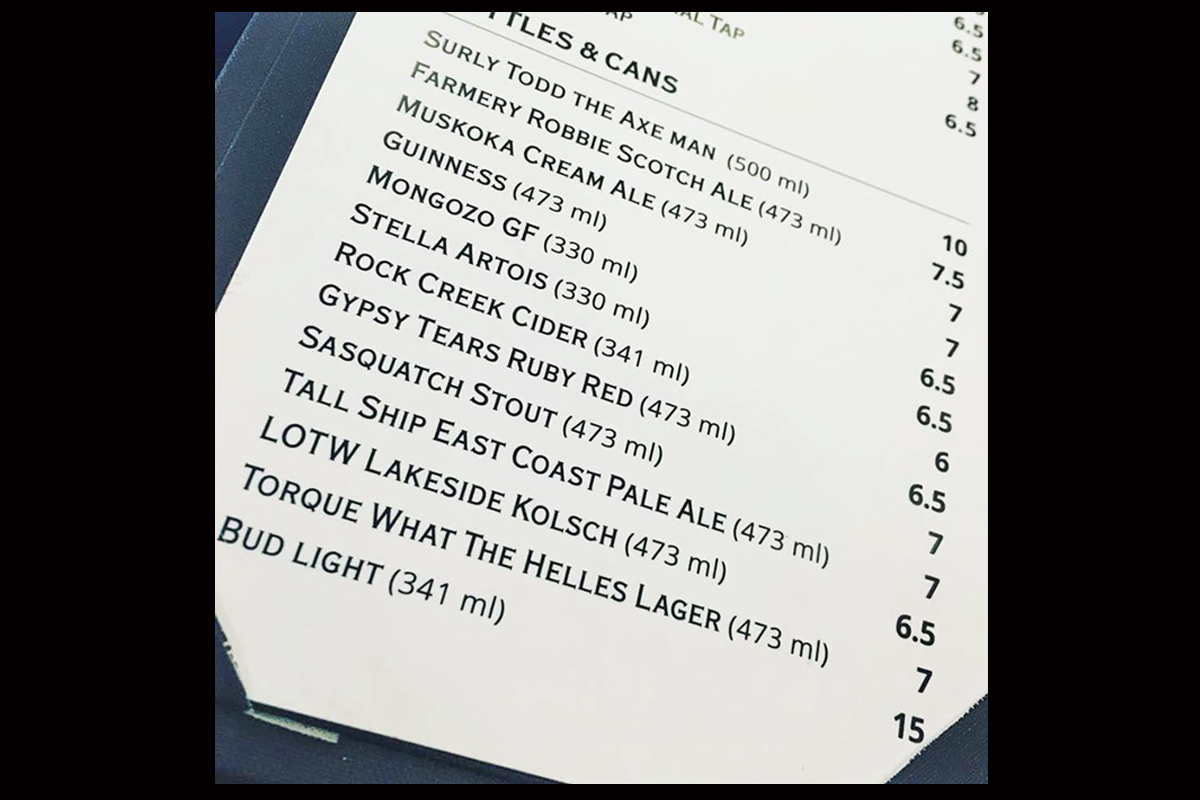 AL TAP
6.5
6.5
7
8
6.5
TTLES & CANS
SURLY TODD THE AXE MAN (500 ml) 10
FARMERY ROBBIE SCOTCH ALE (473 ml) 7.5
MUSKOKA CREAM ALE (473 ml) 7
GUINNESS (473 ml) 7
MONGOZO GF (330 ml) 6.5
STELLA ARTOIS (330 ml) 6.5
ROCK CREEK CIDER (341 ml) 6
GYPSY TEARS RUBY RED (473 ml) 6.5
SASQUATCH STOUT (473 ml) 7
TALL SHIP EAST COAST PALE ALE (473 ml) 7
LOTW LAKESIDE KOLSCH (473 ml) 6.5
TORQUE WHAT THE HELLES LAGER (473 ml) 7
BUD LIGHT (341 ml) 15